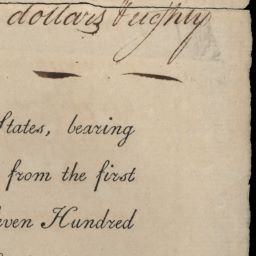 dollars & eighty
States, bearing
from the first
even Hundred